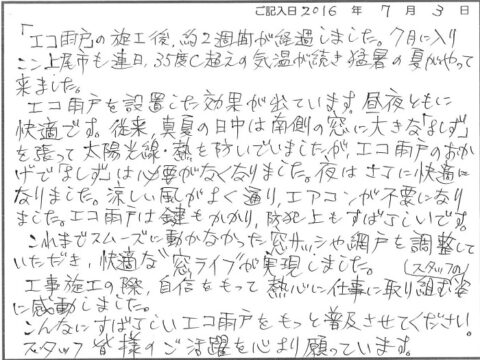 ご記入日 2016 年 7 月 3 日
「エコ雨戸の施工後、約2週間が経過しました。7月に入り
ここ上尾市も連日、35度C超えの気温が続き猛暑の夏がやって
来ました。
エコ雨戸を設置した効果が出ています。昼夜ともに
快適です。従来、真夏の日中は南側の窓に大きな「よしず」
を張って太陽光線・熱を防いでいましたが、エコ雨戸のおか
げで「よしず」は必要がなくなりました。夜はさらに快適に
なりました。涼しい風がよく通り、エアコンが不要になり
ました。エコ雨戸は鍵もかかり、防犯上もすばらしいです。
これまでスムーズに動かなかった窓サッシや網戸を調整して
いただき、快適な“窓ライフ”が実現しました。
(スタッフの)
工事施工の際、自信をもって熱心に仕事に取り組む姿
に感動しました。
こんなにすばらしいエコ雨戸をもっと普及させてください。
スタッフ皆様のご活躍を心より願っています。